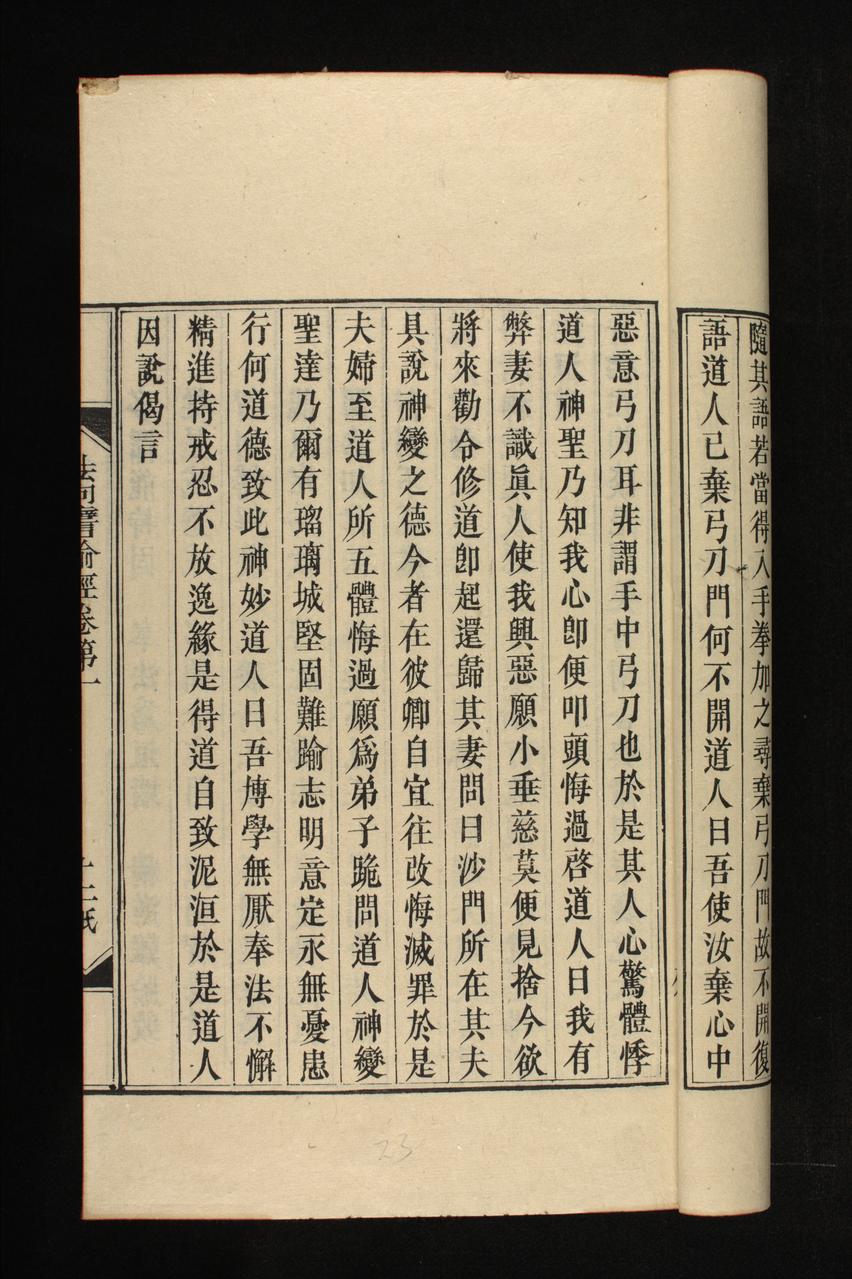 隨其語若當得入手拳加之尋棄弓刀門故不開復
語道人已棄弓刀門何不開道人曰吾使汝棄心中
惡意弓刀耳非謂手中弓刀也於是其人心驚體悸
道人神聖乃知我心卽便叩頭悔過啓道人曰我有
弊妻不識眞人使我興惡願小垂慈莫便見捨今欲
將來勸令修道卽起還歸其妻問曰沙門所在其夫
具說神變之德今者在彼卿自宜往改悔滅罪於是
夫婦至道人所五體悔過願爲弟子跪問道人神變
聖達乃爾有瑠璃城堅固難踰志明意定永無憂患
行何道德致此神妙道人曰吾博學無厭奉法不懈
精進持戒忍不放逸緣是得道自致泥洹於是道人
因說偈言
法句譬喻經卷第一
23